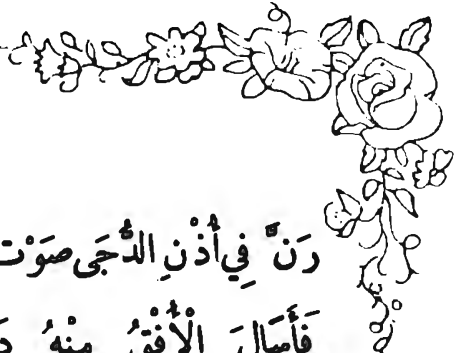 رَنَّ فِي أُذْنِ الدُّجَى صَوْت
فَأَسَالَ الْأُفْقُ مِنْهُ